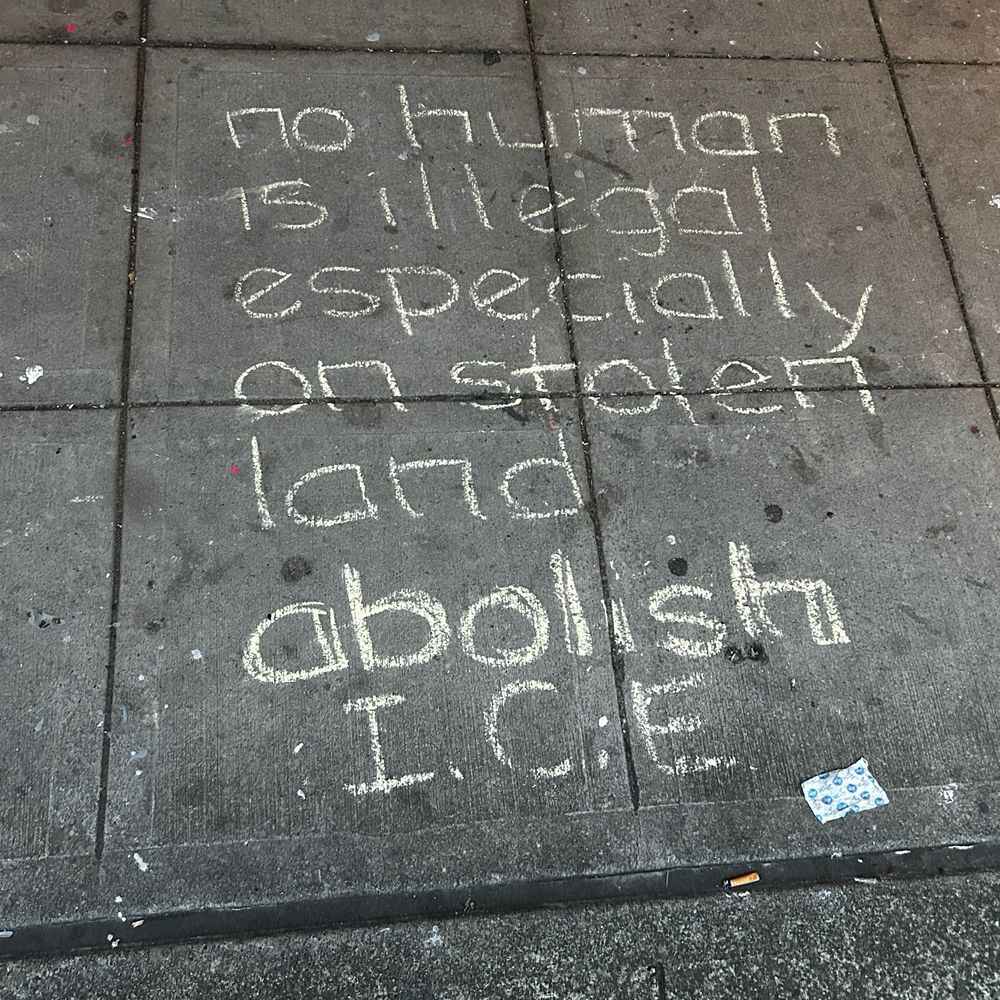 no human
is illegal
especially
on stolen
land
abolish
I.C.E